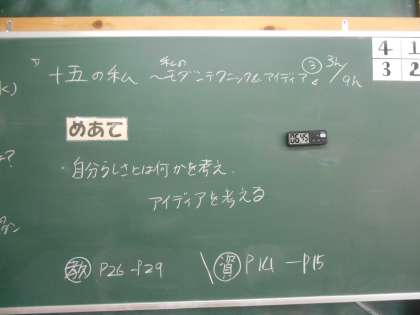 十五の私 ～モダンテクニックとアイディア～ ③ 3h/9h
私の
めあて
・自分らしさとは何かを考え、
アイディアを考える
教 P26-P29 資 P14-P15
4 1
3 2